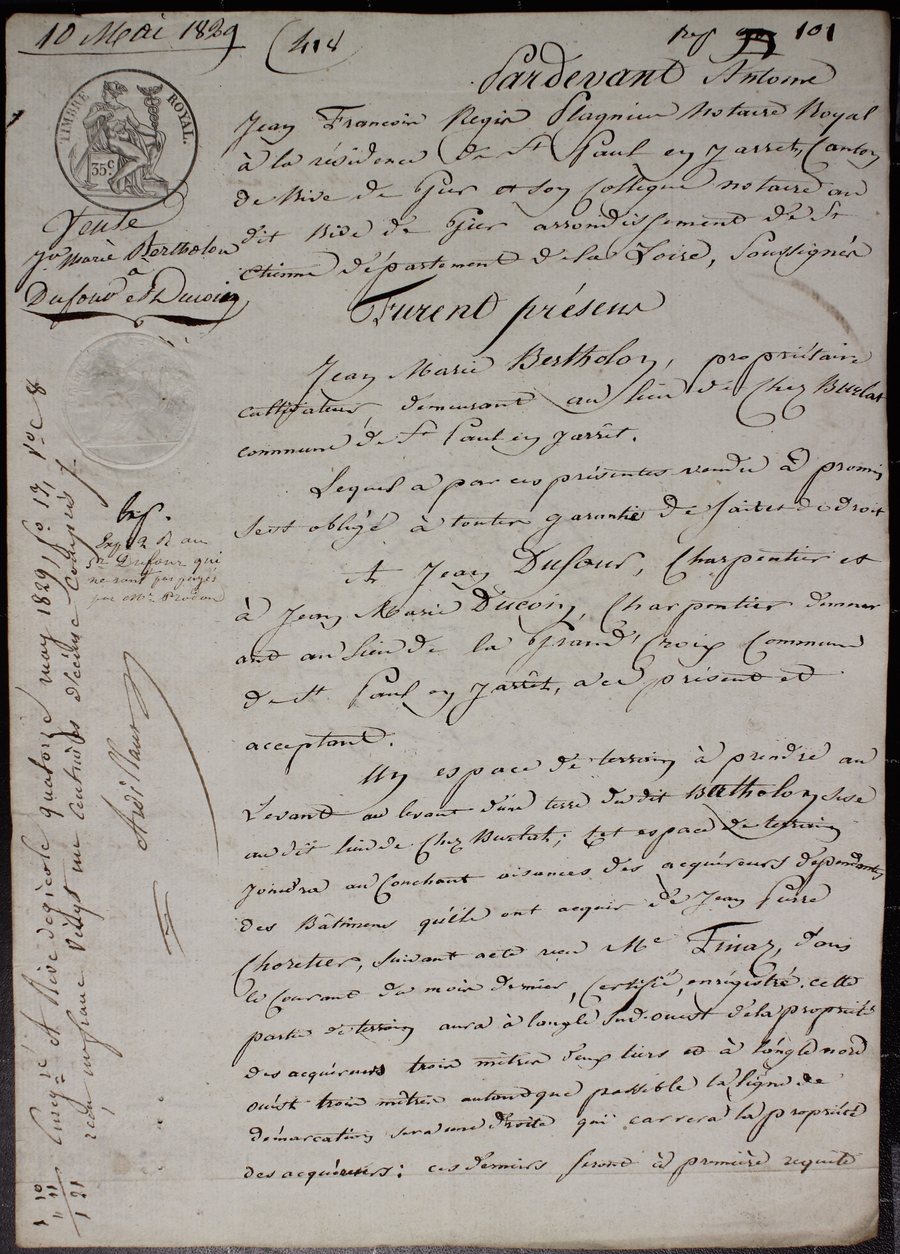 10 Mai 1829
418
101
TIMBRE ROYAL.
35 c
Vente
Jn Marie Bertholon
à
Dufour et Ducoin
Pardevant Antoine
Jean François Regis Plagnieu Notaire Royal
à la résidence de St Paul en Jarret, Canton
de Rive de Gier et son Collegue notaire au
dit Rive de Gier arrondissement de St
Etienne département de la Loire, Soussignés
Furent présens
Jean Marie Bertholon, propriétaire
cultivateur, demeurant au lieu de Chez Burlat
commune de St Paul en Jarret.
Lequel a par ces présentes vendu & promis
s'est obligé à toutes garanties de fait et de droit
A Jean Dufour, Charpentier et
à Jean Marie Ducoin, Charpentier demeur
ant au lieu de la Grand' Croix Commune
de St Paul en Jarret, à ce présent et
acceptant.
Un espace de terrain à prendre au
Levant au levant d'une terre du dit Bertholon, sise
au dit lieu de Chez Burlat; Cet espace de terrain
joindra au Couchant aisances des acquéreurs dépendantes
des Bâtimens qu'ils ont acquis de Jean Pierre
Choretier, suivant acte reçu Me Finaz, dans
le Courant du mois dernier, Certifié, enrégistré. cette
partie de terrain aura à langle sud-ouest de la propriété
des acquéreurs trois mètres deux tiers et à l'angle nord
ouest trois mètres autant que possible la ligne de
démarcation sera une droite qui carrera la propriété
des acquéreurs: ces derniers seront à première requête
Exp. 2 R au
Sr Dufour qui
ne sont pas payés
par Mr
Enregé à Rive de gier le quatorze may 1829, fo 17, Vo C 8
reçu un franc vingt un centimes décime compris
1 10
11
1 21